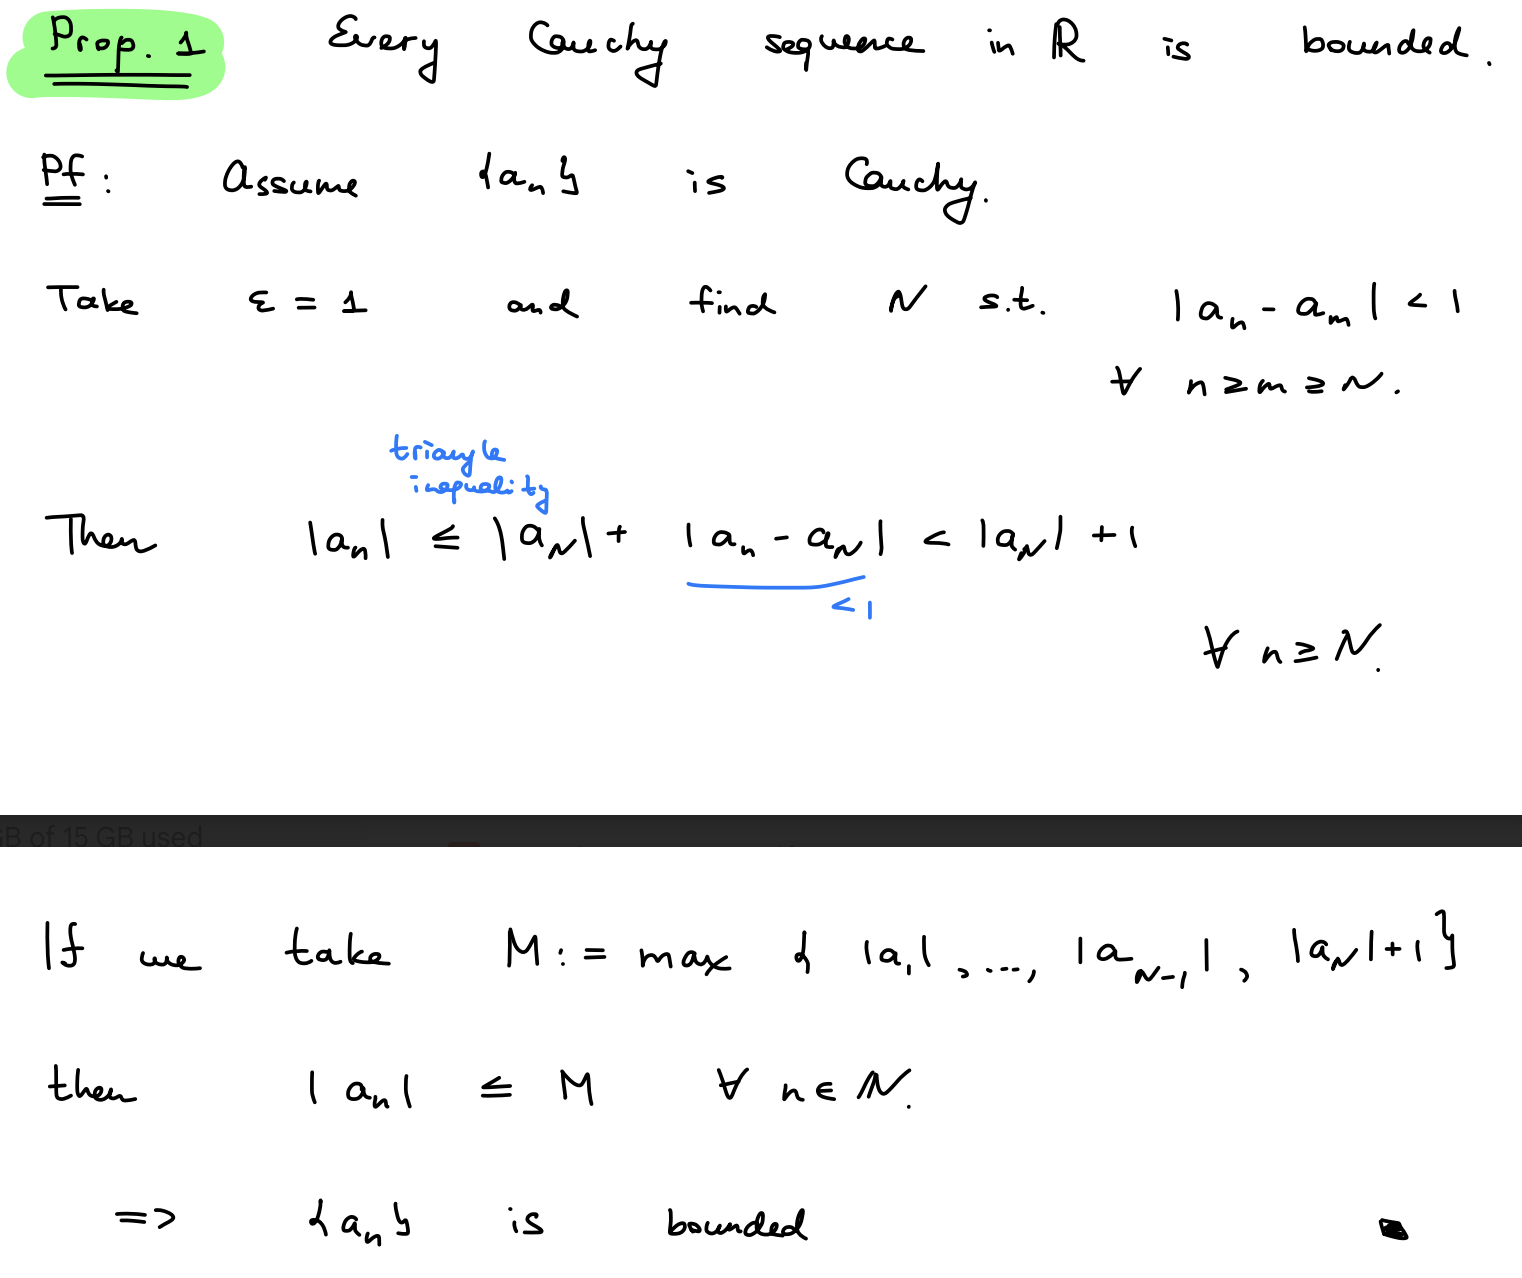 Prop. 1 Every Cauchy sequence in ℝ is bounded.
Pf: Assume {aₙ} is Cauchy.
Take ε = 1 and find N s.t. |aₙ - aₘ| < 1
∀ n ≥ m ≥ N.
triangle
inequality
Then |aₙ| ≤ |a_N| + |aₙ - a_N| < |a_N| + 1
< 1
∀ n ≥ N.
GB of 15 GB used
If we take M := max { |a₁|, ..., |a_{N-1}|, |a_N| + 1 }
then |aₙ| ≤ M ∀ n ∈ ℕ.
=> {aₙ} is bounded